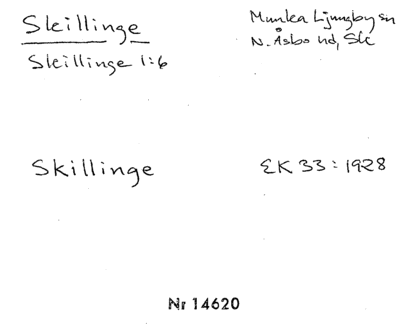 Skillinge
Munka Ljungby sn
Skillinge 1:6
N. Åsbo hd, Sk
Skillinge
EK 33:1928
Nr 14620